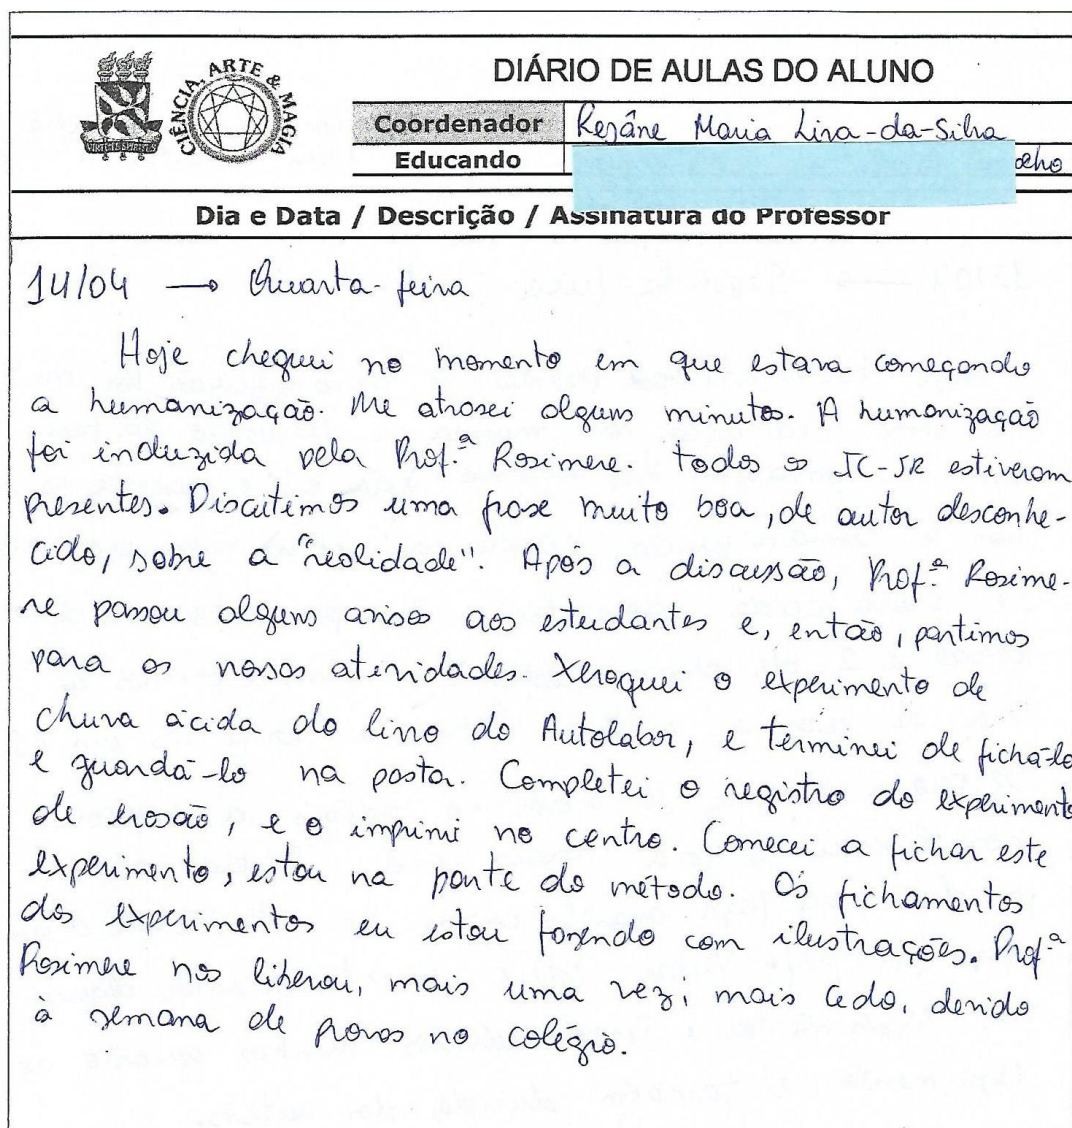 CIÊNCIA, ARTE & MAGIA
DIÁRIO DE AULAS DO ALUNO
Coordenador Rejâne Maria Lira-da-Silva
Educando elho
Dia e Data / Descrição / Assinatura do Professor
14/04 → Quarta-feira
Hoje cheguei no momento em que estava começando
a humanização. Me atrasei alguns minutos. A humanização
foi induzida pela Prof.ª Rosimere. Todos os JC-JR estiveram
presentes. Discutimos uma frase muito boa, de autor desconhe-
cido, sobre a "realidade". Após a discussão, Prof.ª Rosime-
re passou alguns avisos aos estudantes e, então, partimos
para as nossas atividades. Xeroquei o experimento de
chuva ácida do livro do Autolabor, e terminei de fichá-lo
e guardá-lo na pasta. Completei o registro do experimento
de erosão, e o imprimi no centro. Comecei a fichar este
experimento, estou na parte do método. Os fichamentos
dos experimentos eu estou fazendo com ilustrações. Prof.ª
Rosimere nos liberou, mais uma vez, mais cedo, devido
à semana de provas no colégio.